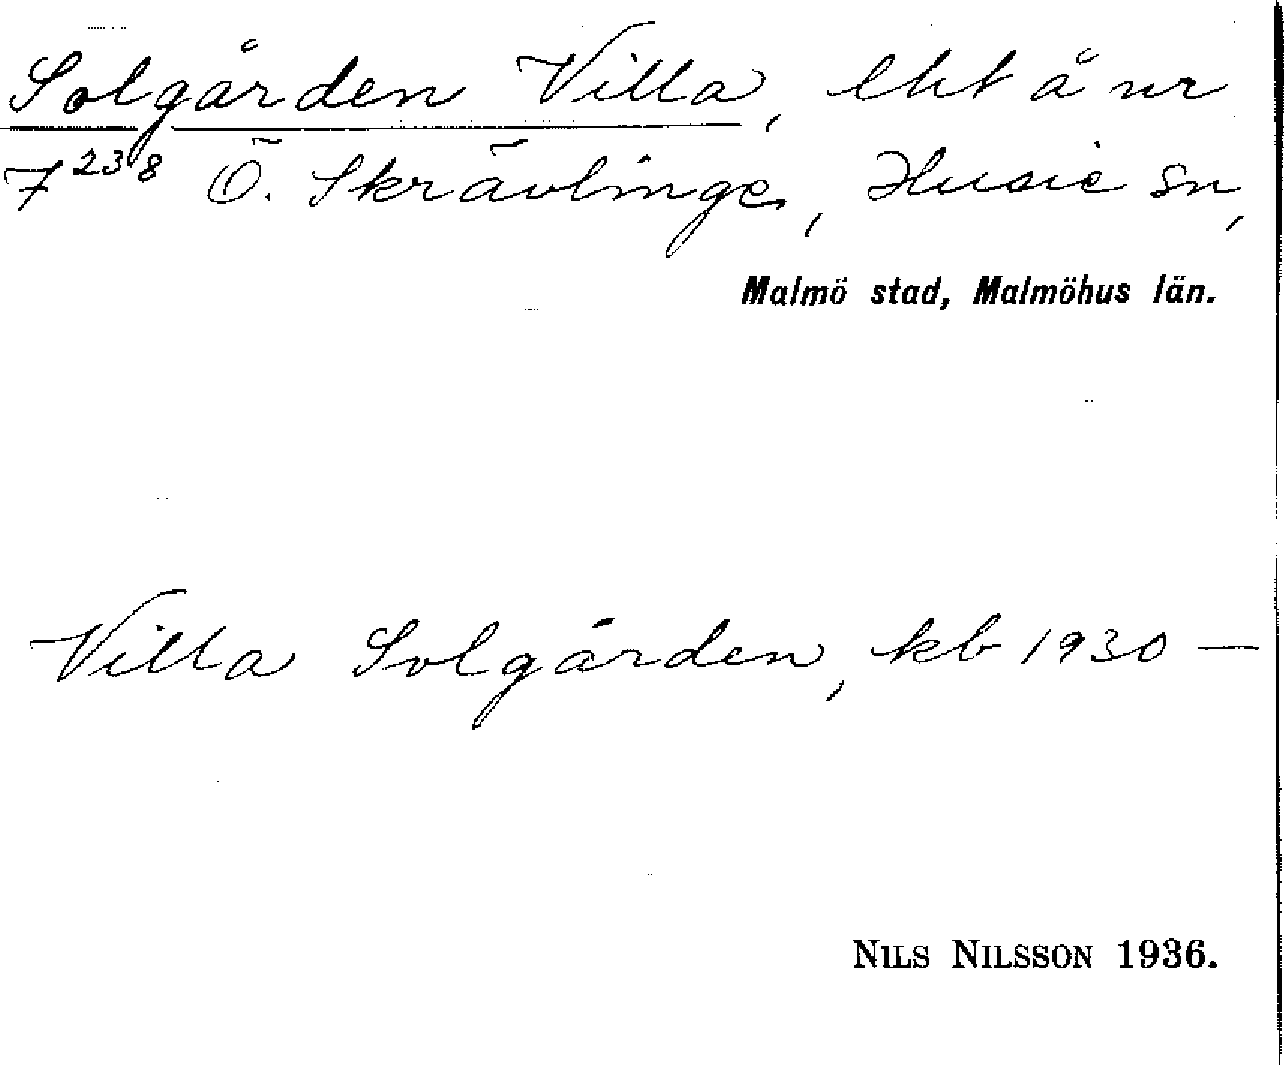 Solgården Villa, lht å nr
7²³⁸ Ö. Skrävlinge, Husie sn,
Malmö stad, Malmöhus län.
Villa Solgården, kb 1930 —
NILS NILSSON 1936.